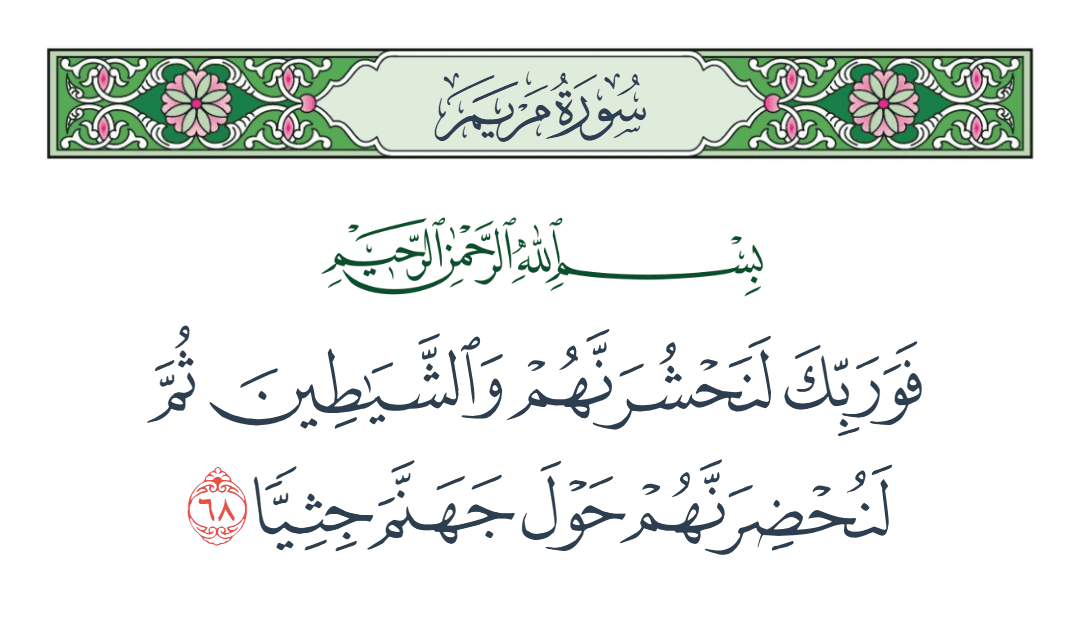 سُورَةُ مَرْيَمَ
بِسْمِ ٱللَّهِ ٱلرَّحْمَٰنِ ٱلرَّحِيمِ
فَوَرَبِّكَ لَنَحْشُرَنَّهُمْ وَٱلشَّيَٰطِينَ ثُمَّ
لَنُحْضِرَنَّهُمْ حَوْلَ جَهَنَّمَ جِثِيًّا ٦٨